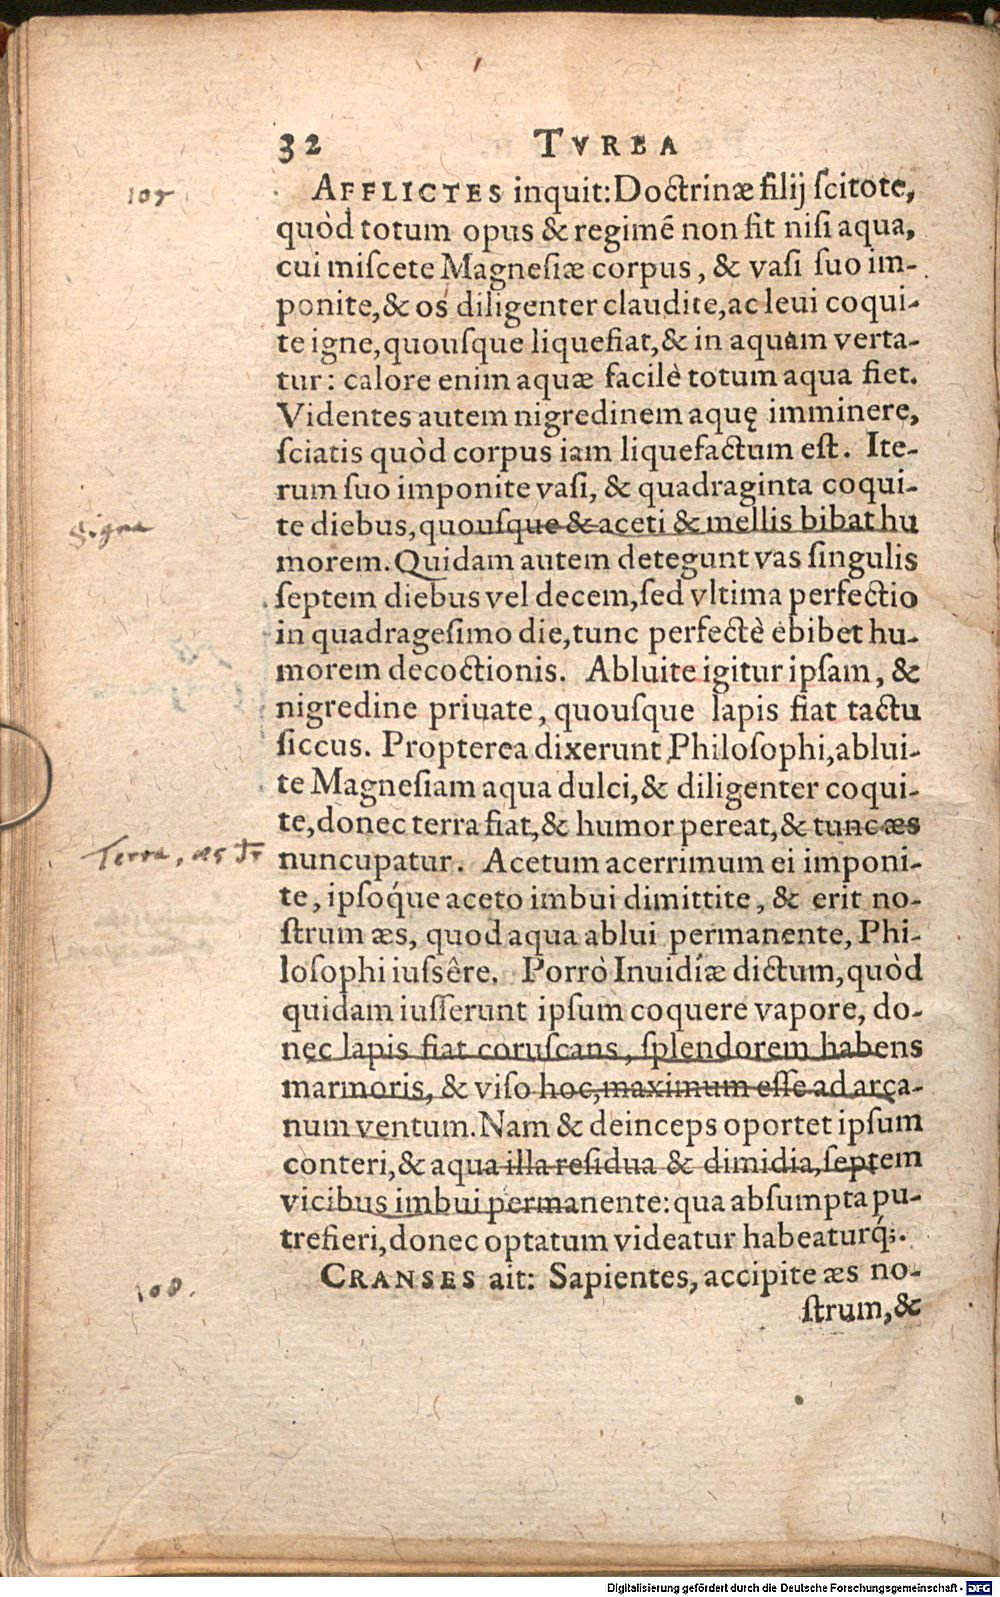 32 TVRBA
107
AFFLICTES inquit: Doctrinæ filij scitote,
quòd totum opus & regimẽ non fit nisi aqua,
cui miscete Magnesiæ corpus, & vasi suo im-
ponite, & os diligenter claudite, ac leui coqui-
te igne, quousque liquefiat, & in aquam verta-
tur: calore enim aquæ facilè totum aqua fiet.
Videntes autem nigredinem aquę imminere,
sciatis quòd corpus iam liquefactum est. Ite-
rum suo imponite vasi, & quadraginta coqui-
Signa
te diebus, quousque & aceti & mellis bibat hu
morem. Quidam autem detegunt vas singulis
septem diebus vel decem, sed vltima perfectio
in quadragesimo die, tunc perfectè ebibet hu-
morem decoctionis. Abluite igitur ipsam, &
nigredine priuate, quousque lapis fiat tactu
siccus. Propterea dixerunt Philosophi, ablui-
te Magnesiam aqua dulci, & diligenter coqui-
te, donec terra fiat, & humor pereat, & tunc æs
Terra, æs
nuncupatur. Acetum acerrimum ei imponi-
te, ipsóque aceto imbui dimittite, & erit no-
strum æs, quod aqua ablui permanente, Phi-
losophi iussêre. Porrò Inuidiæ dictum, quòd
quidam iusserunt ipsum coquere vapore, do-
nec lapis fiat coruscans, splendorem habens
marmoris, & viso hoc, maximum esse ad arca-
num ventum. Nam & deinceps oportet ipsum
conteri, & aqua illa residua & dimidia, septem
vicibus imbui permanente: qua absumpta pu-
trefieri, donec optatum videatur habeaturq́;.
108.
CRANSES ait: Sapientes, accipite æs no-
strum, &
Digitalisierung gefördert durch die Deutsche Forschungsgemeinschaft - DFG